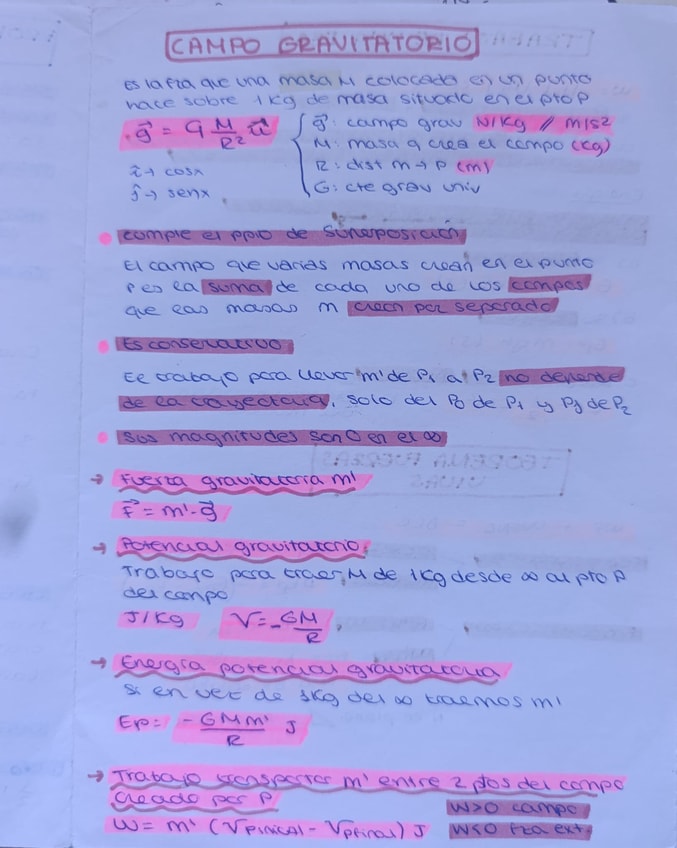 CAMPO GRAVITATORIO
Es la fza que una masa M colocada en un punto
hace sobre 1kg de masa situado en el pto P
g⃗ = G M/R² u⃗
g⃗: campo grav N/Kg // m/s2
M: masa q crea el campo (kg)
R: dist m → P (m)
G: cte grav univ
i⃗ → cosx
j⃗ → senx
• cumple el ppio de superposición
El campo que varias masas crean en el punto
P es la suma de cada uno de los campos
que las masas m creen por separado
• Es conservativo
El trabajo para llevar m' de P₁ a P₂ no depende
de la trayectoria, solo del P0 de P₁ y Pf de P₂
• Sus magnitudes son 0 en el ∞
→ Fuerza gravitatoria m'
F⃗ = m'·g⃗
→ Potencial gravitatorio:
Trabajo para traer M de 1kg desde ∞ al pto P
del campo
J/Kg V = -GM/R
→ Energía potencial gravitatoria
Si en vez de 1Kg del ∞ traemos m'
Ep = -GMm'/R J
→ Trabajo transportar m' entre 2 ptos del campo
creado por P
W>0 campo
W = m' (Vpinicial - Vpfinal) J
W<0 fza ext.